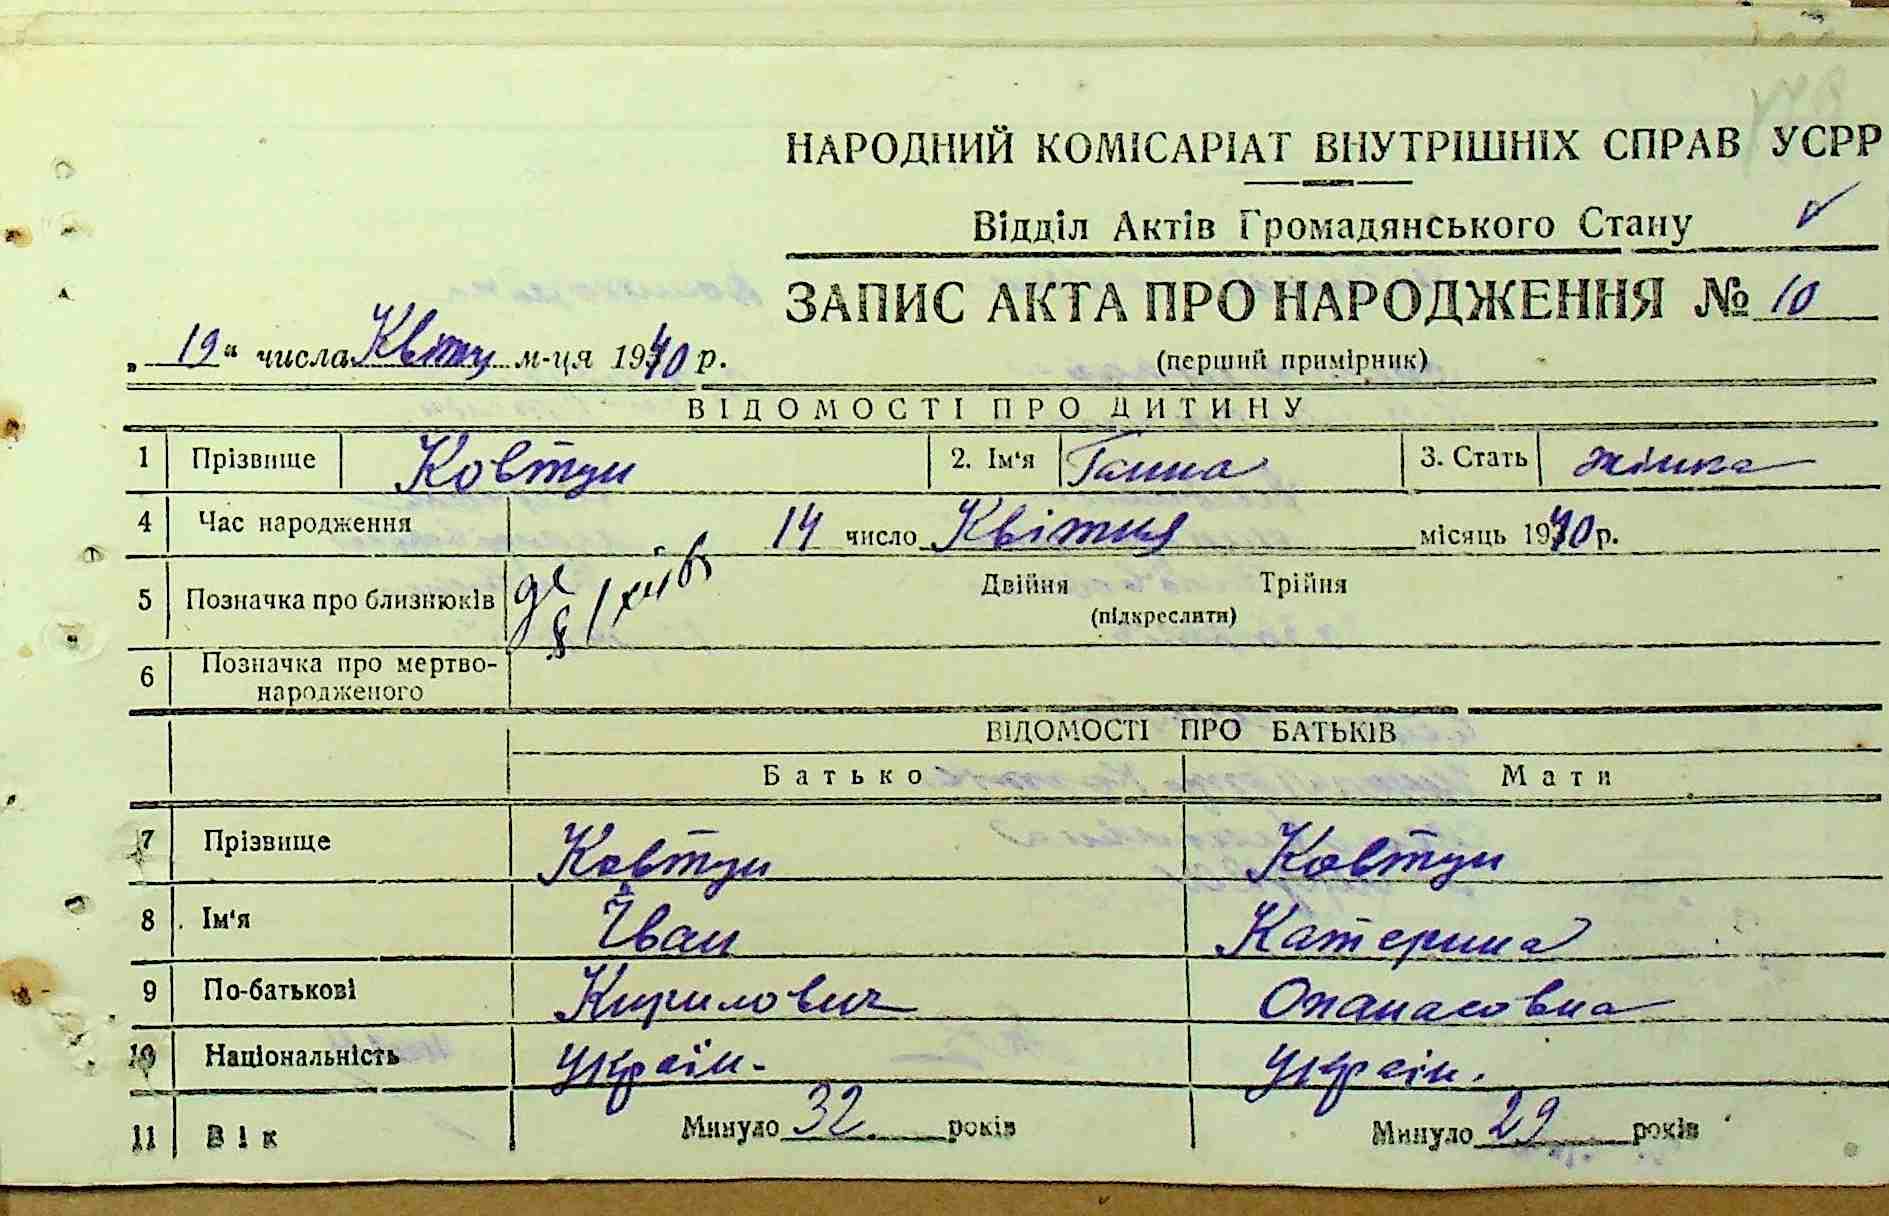 НАРОДНИЙ КОМІСАРІАТ ВНУТРІШНІХ СПРАВ УСРР
Відділ Актів Громадянського Стану
ЗАПИС АКТА ПРО НАРОДЖЕННЯ № 10
„19“ числа Квітня м-ця 1940 р.
(перший примірник)
ВІДОМОСТІ ПРО ДИТИНУ
1 Прізвище Ковтун 2. Ім‘я Ганна 3. Стать жінка
4 Час народження 14 число Квітня місяць 1940 р.
5 Позначка про близнюків Двійня Трійня
(підкреслити)
6 Позначка про мертво-
народженого
ВІДОМОСТІ ПРО БАТЬКІВ
Батько Мати
7 Прізвище Ковтун Ковтун
8 Ім‘я Іван Катерина
9 По-батькові Кирилович Опанасовна
10 Національність україн. україн.
11 Вік Минуло 32 років Минуло 29 років